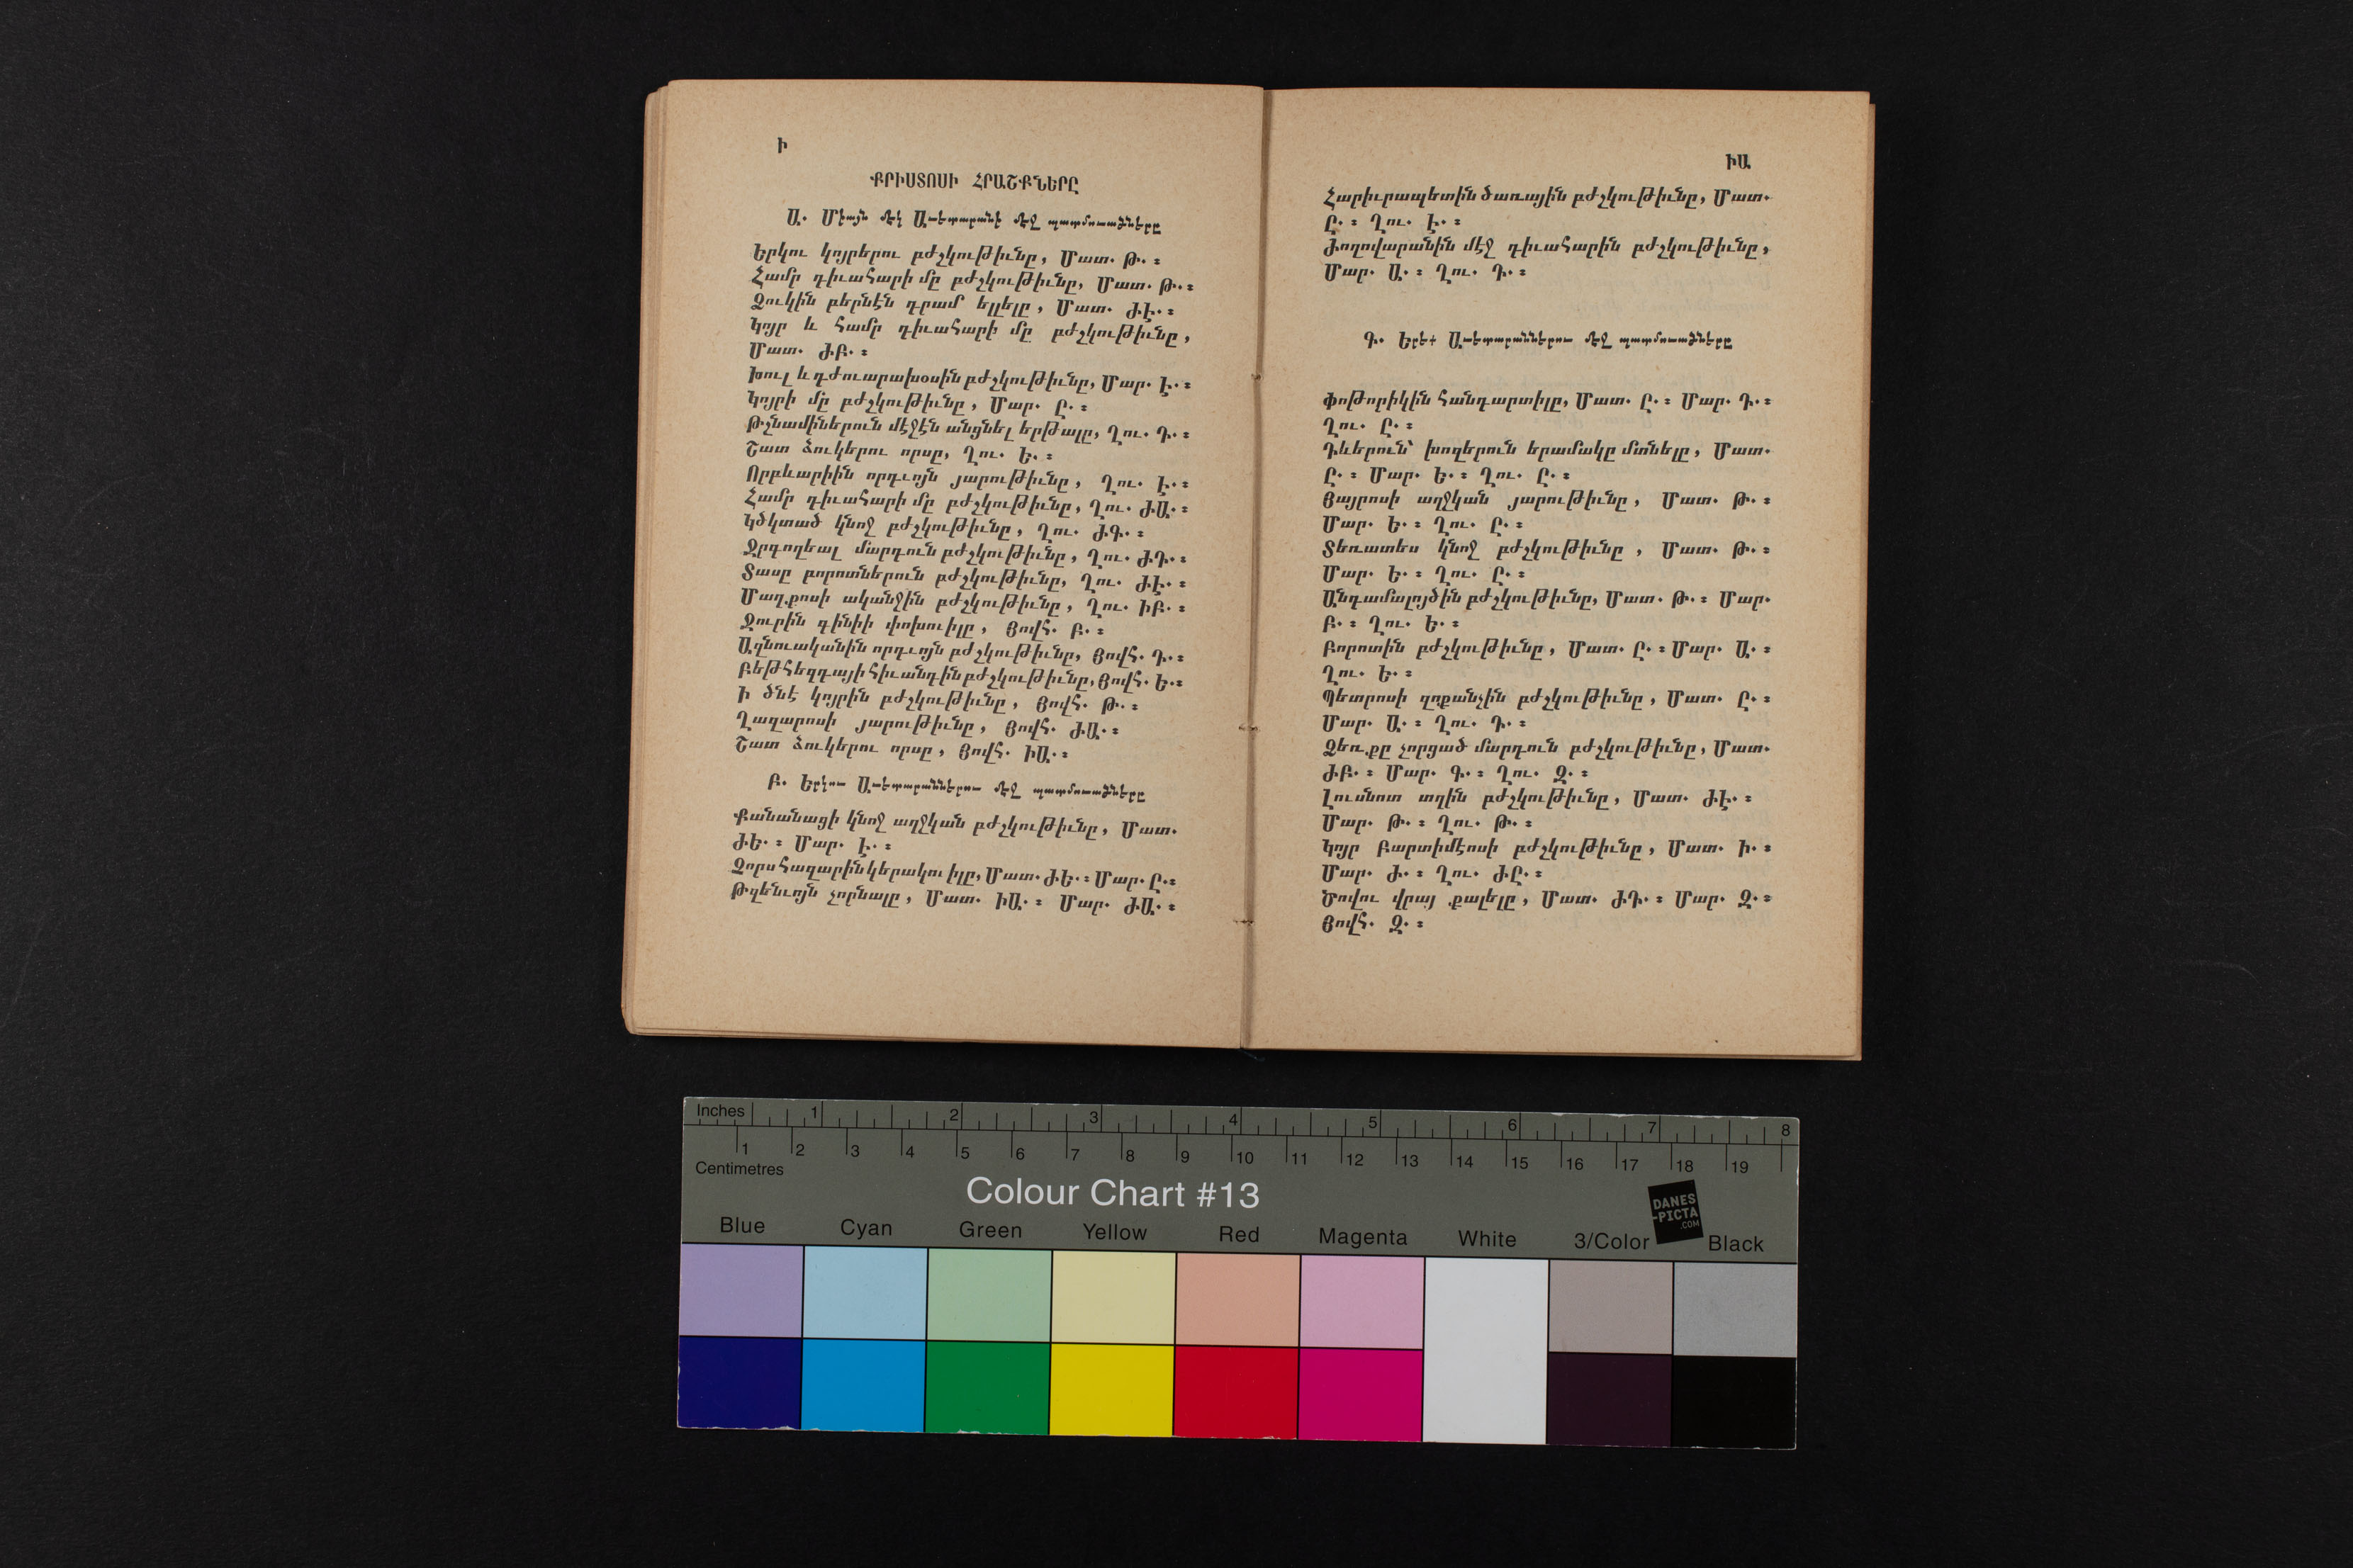 Ի
ՔՐԻՍՏՈՍԻ ՀՐԱՇՔՆԵՐԸ
Ա․ Միայն մէկ Աւետարանի մէջ պատմուածները
Երկու կոյրերու բժշկութիւնը, Մատ․ Թ․։
Համր դիւահարի մը բժշկութիւնը, Մատ․ Թ․։
Ձուկին բերնէն դրամ ելլելը, Մատ․ ԺԷ․։
Կոյր և համր դիւահարի մը բժշկութիւնը,
Մատ․ ԺԲ․։
Խուլ և դժուարախօսին բժշկութիւնը, Մար․ Է․։
Կոյրի մը բժշկութիւնը, Մար․ Ը․։
Թշնամիներուն մէջէն անցնել երթալը, Ղու․ Դ․։
Շատ ձուկերու որսը, Ղու․ Ե․։
Որբևարիին որդւոյն յարութիւնը, Ղու․ Է․։
Համր դիւահարի մը բժշկութիւնը, Ղու․ ԺԱ․։
Կծկտած կնոջ բժշկութիւնը, Ղու․ ԺԳ․։
Ջրգողեալ մարդուն բժշկութիւնը, Ղու․ ԺԴ․։
Տասը բորոտներուն բժշկութիւնը, Ղու․ ԺԷ․։
Մաղքոսի ականջին բժշկութիւնը, Ղու․ ԻԲ․։
Ջուրին գինիի փոխուիլը, Յովհ․ Բ․։
Ազնուականին որդւոյն բժշկութիւնը, Յովհ․ Դ․։
Բեթհեզդայի հիւանդին բժշկութիւնը, Յովհ․ Ե․։
Ի ծնէ կոյրին բժշկութիւնը, Յովհ․ Թ․։
Ղազարոսի յարութիւնը, Յովհ․ ԺԱ․։
Շատ ձուկերու որսը, Յովհ․ ԻԱ․։
Բ․ Երկու Աւետարաններու մէջ պատմուածները
Քանանացի կնոջ աղջկան բժշկութիւնը, Մատ․
ԺԵ․։ Մար․ Է․։
Չորս հազարին կերակուիլը, Մատ․ ԺԵ․։ Մար․ Ը․։
Թզենւոյն չորնալը, Մատ․ ԻԱ․։ Մար․ ԺԱ․։
ԻԱ
Հարիւրապետին ծառային բժշկութիւնը, Մատ․
Ը․։ Ղու․ Է․։
Ժողովարանին մէջ դիւահարին բժշկութիւնը,
Մար․ Ա․։ Ղու․ Դ․։
Գ․ Երեք Աւետարաններու մէջ պատմուածները
Փոթորիկին հանդարտիլը, Մատ․ Ը․։ Մար․ Դ․։
Ղու․ Ը․։
Դևերուն՝ խոզերուն երամակը մտնելը, Մատ․
Ը․։ Մար․ Ե․։ Ղու․ Ը․։
Յայրոսի աղջկան յարութիւնը, Մատ․ Թ․։
Մար․ Ե․։ Ղու․ Ը․։
Տեռատես կնոջ բժշկութիւնը, Մատ․ Թ․։
Մար․ Ե․։ Ղու․ Ը․։
Անդամալոյծին բժշկութիւնը, Մատ․ Թ․։ Մար․
Բ․։ Ղու․ Ե․։
Բորոտին բժշկութիւնը, Մատ․ Ը․։ Մար․ Ա․։
Ղու․ Ե․։
Պետրոսի զոքանչին բժշկութիւնը, Մատ․ Ը․։
Մար․ Ա․։ Ղու․ Դ․։
Ձեռքը չորցած մարդուն բժշկութիւնը, Մատ․
ԺԲ․։ Մար․ Գ․։ Ղու․ Զ․։
Լուսնոտ տղին բժշկութիւնը, Մատ․ ԺԷ․։
Մար․ Թ․։ Ղու․ Թ․։
Կոյր Բարտիմէոսի բժշկութիւնը, Մատ․ Ի․։
Մար․ Ժ․։ Ղու․ ԺԸ․։
Ծովու վրայ քալելը, Մատ․ ԺԴ․։ Մար․ Զ․։
Յովհ․ Զ․։
Inches 1 2 3 4 5 6 7 8
1 2 3 4 5 6 7 8 9 10 11 12 13 14 15 16 17 18 19
Centimetres
Colour Chart #13
DANES
-PICTA
.COM
Blue Cyan Green Yellow Red Magenta White 3/Color Black